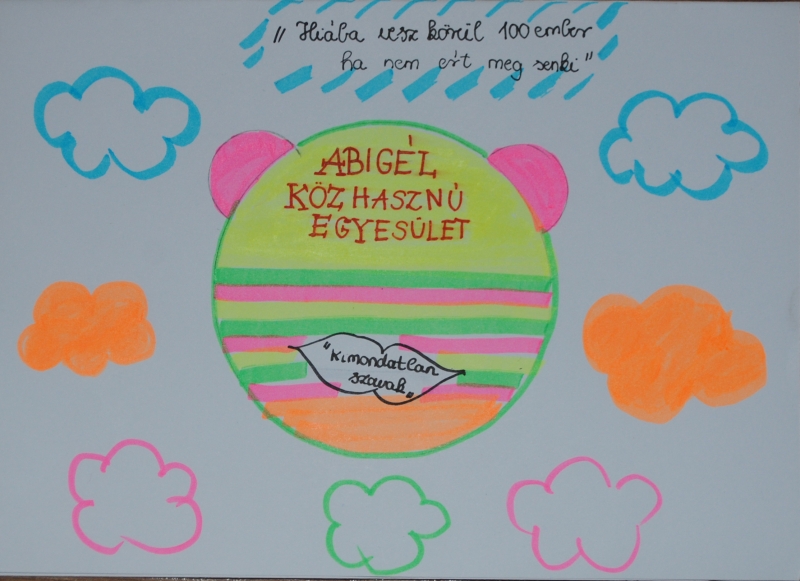 „ Hiába vesz körül 100 ember
ha nem ért meg senki"
ABIGÉL
KÖZHASZNÚ
EGYESÜLET
"Kimondatlan
szavak„